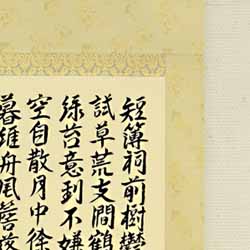 短簿祠前樹欝
試草荒支澗鶴
緑苔意到不嫌
空自散月中徐
暮維舟風籜落